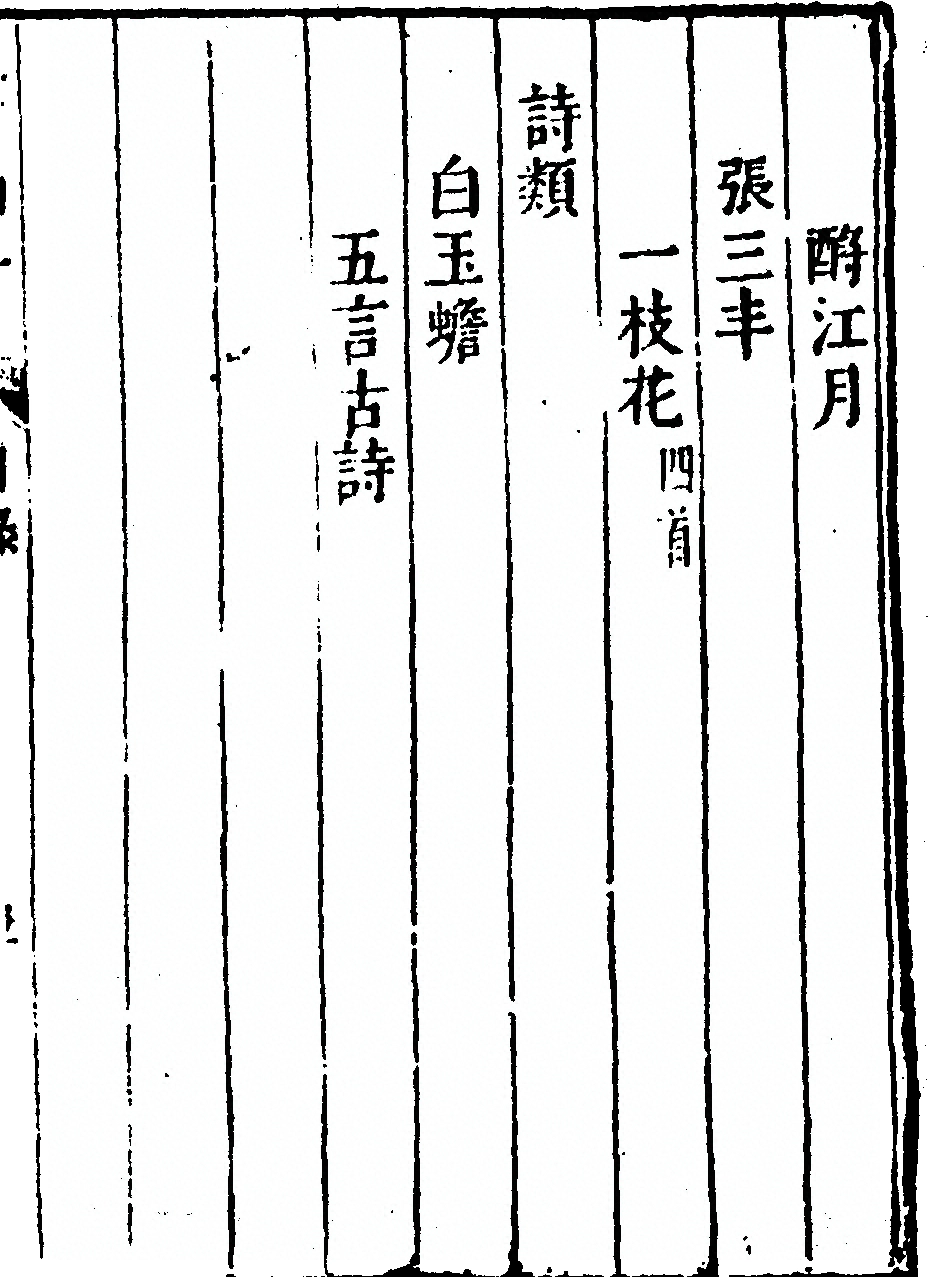 酹江月
張三丰
一枝花四首
詩類
白玉蟾
五言古詩